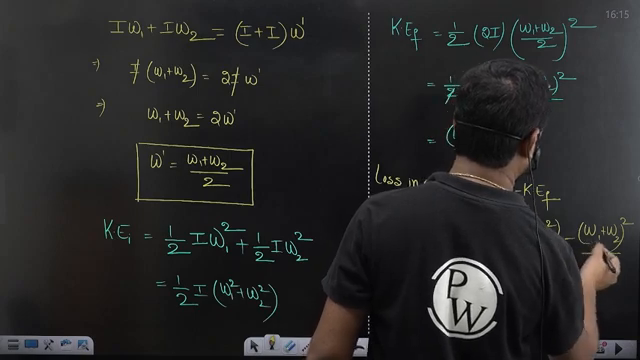 16:15
Iω₁ + Iω₂ = (I+I)ω'
⇒ I(ω₁+ω₂) = 2Iω'
⇒ ω₁+ω₂ = 2ω'
ω' = (ω₁+ω₂)/2
KEᵢ = 1/2 Iω₁² + 1/2 Iω₂²
= 1/2 I(ω₁²+ω₂²)
KE_f = 1/2 (2I) ((ω₁+ω₂)/2)²
= 1/2 )²
= (
Loss in - KE_f
²) - (ω₁+ω₂)²
P
W